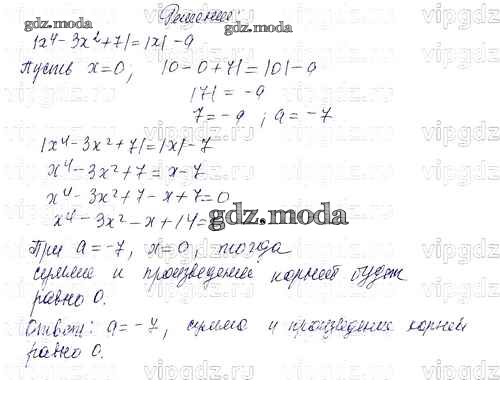 Решение:
gdz.moda gdz.moda
|x⁴ - 3x² + 7| = |x| - a
Пусть x=0; |0 - 0 + 7| = |0| - a
|7| = -a
7 = -a ; a = -7
|x⁴ - 3x² + 7| = |x| - 7
x⁴ - 3x² + 7 = x - 7
x⁴ - 3x² + 7 - x + 7 = 0
x⁴ - 3x² - x + 14 =
gdz.moda
При a = -7, x = 0, тогда
сумма и произведение корней будет
равно 0.
Ответ: a = -7, сумма и произведение корней
равно 0.
vipgdz